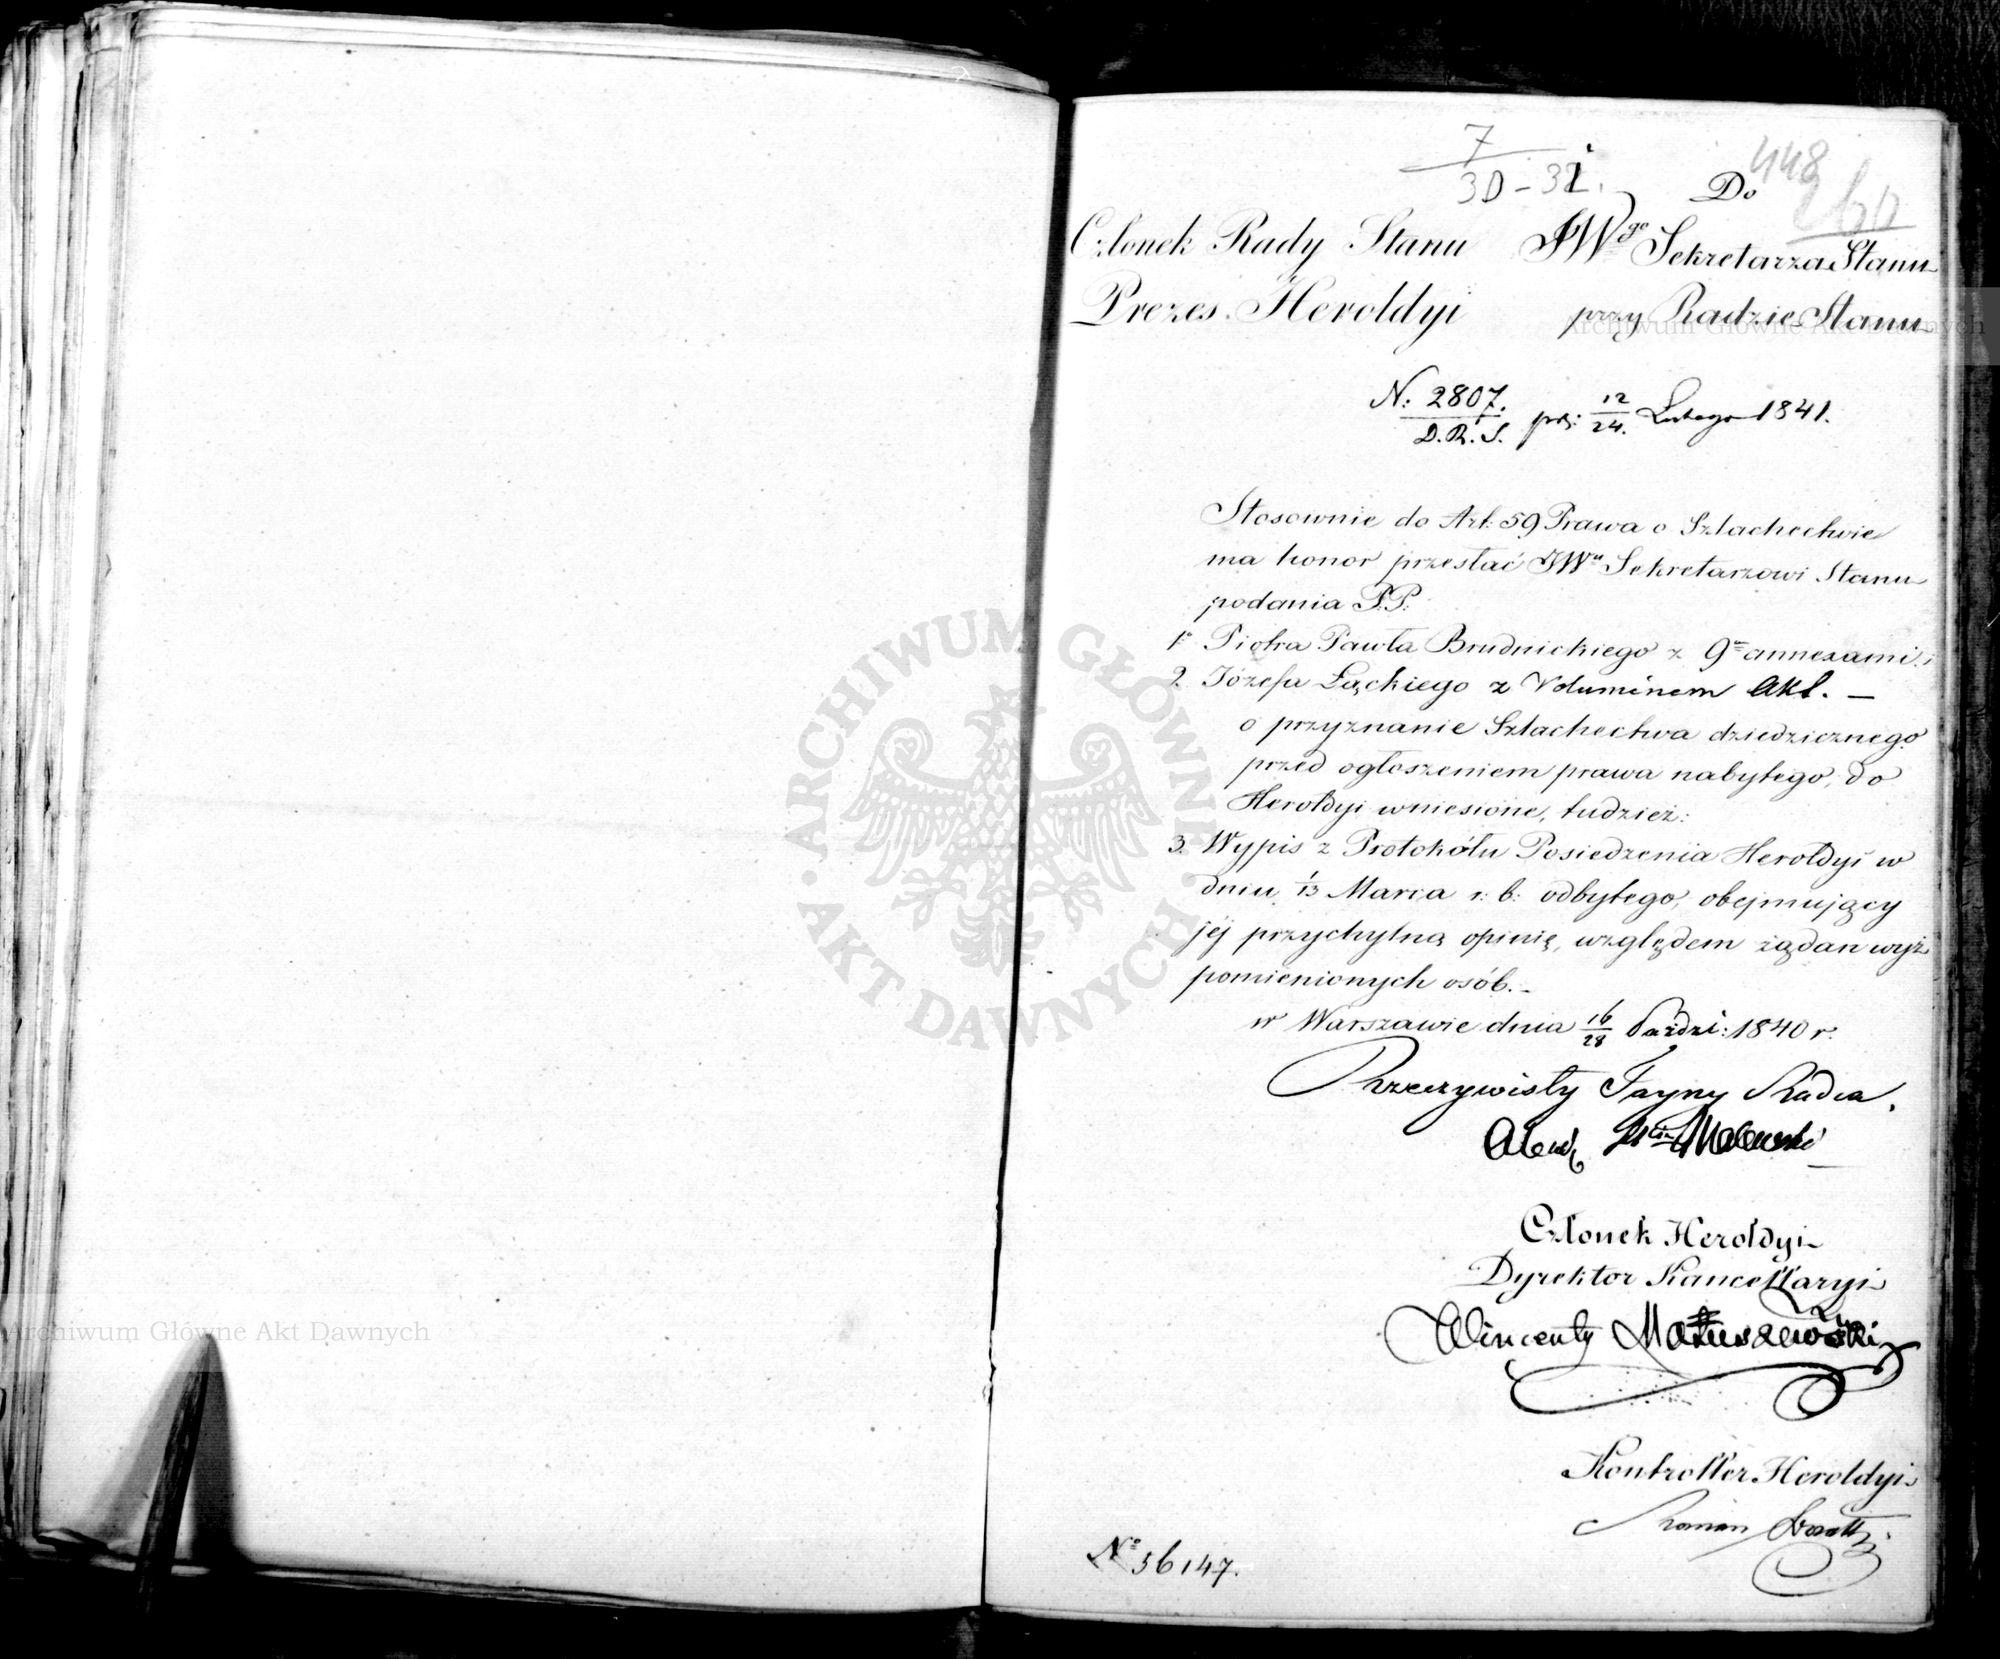 7
30-31.
448
260
Do
Członek Rady Stanu
Prezes Heroldyi
JWgo Sekretarza Stanu
przy Radzie Stanu
N: 2807.
D.R.S. prz: 12/24. Lutego 1841.
Stosownie do Art: 59 Prawa o Szlachectwie
ma honor przesłać JWu Sekretarzowi Stanu
podania P.P.
1o Piotra Pawła Brudnickiego z 9u annexami, i
2. Józefa Łąckiego z Voluminem Akt. —
o przyznanie Szlachectwa dziedzicznego
przed ogłoszeniem prawa nabytego, do
Heroldyi wniesione, tudzież:
3. Wypis z Protokółu Posiedzenia Heroldyi w
dniu 1/13 Marca r: b: odbytego, obejmujący
jéj przychylną opinię, względem żądań wyż
pomienionych osób. –
w Warszawie dnia 16/28 Paździ: 1840 r.
Rzeczywisty Tayny Radca,
Członek Heroldyi
Dyrektor Kancellaryi
Wincenty Matuszewski
Kontroller Heroldyi
Roman
No 36147.
ARCHIWUM GŁÓWNE AKT DAWNYCH
Archiwum Główne Akt Dawnych
Archiwum Główne Akt Dawnych